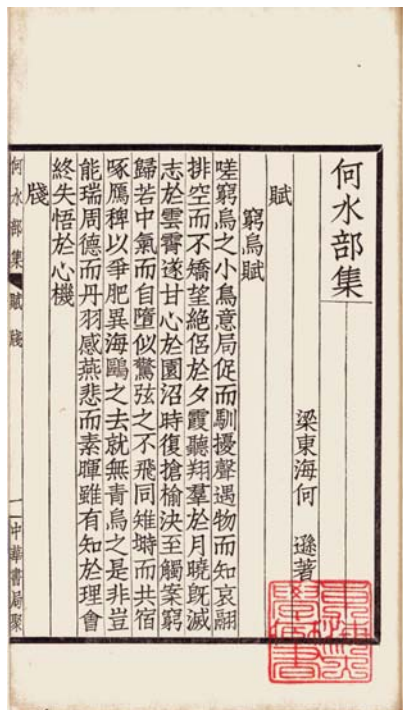 何水部集
梁東海何　遜著
賦
窮烏賦
嗟窮烏之小鳥意局促而馴擾聲遇物而知哀翮
排空而不矯望絕侶於夕霞聽翔羣於月曉旣滅
志於雲霄遂甘心於園沼時復搶榆決至觸案窮
歸若中氣而自墮似驚弦之不飛同雉塒而共宿
啄鴈稗以爭肥異海鷗之去就無青鳥之是非豈
能瑞周德而丹羽感燕悲而素暉雖有知於理會
終失悟於心機
牋
何水部集　賦　牋　一　中華書局聚